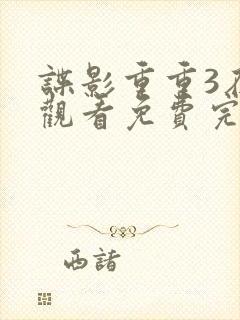 諜影重重3
觀看免費完
西諸